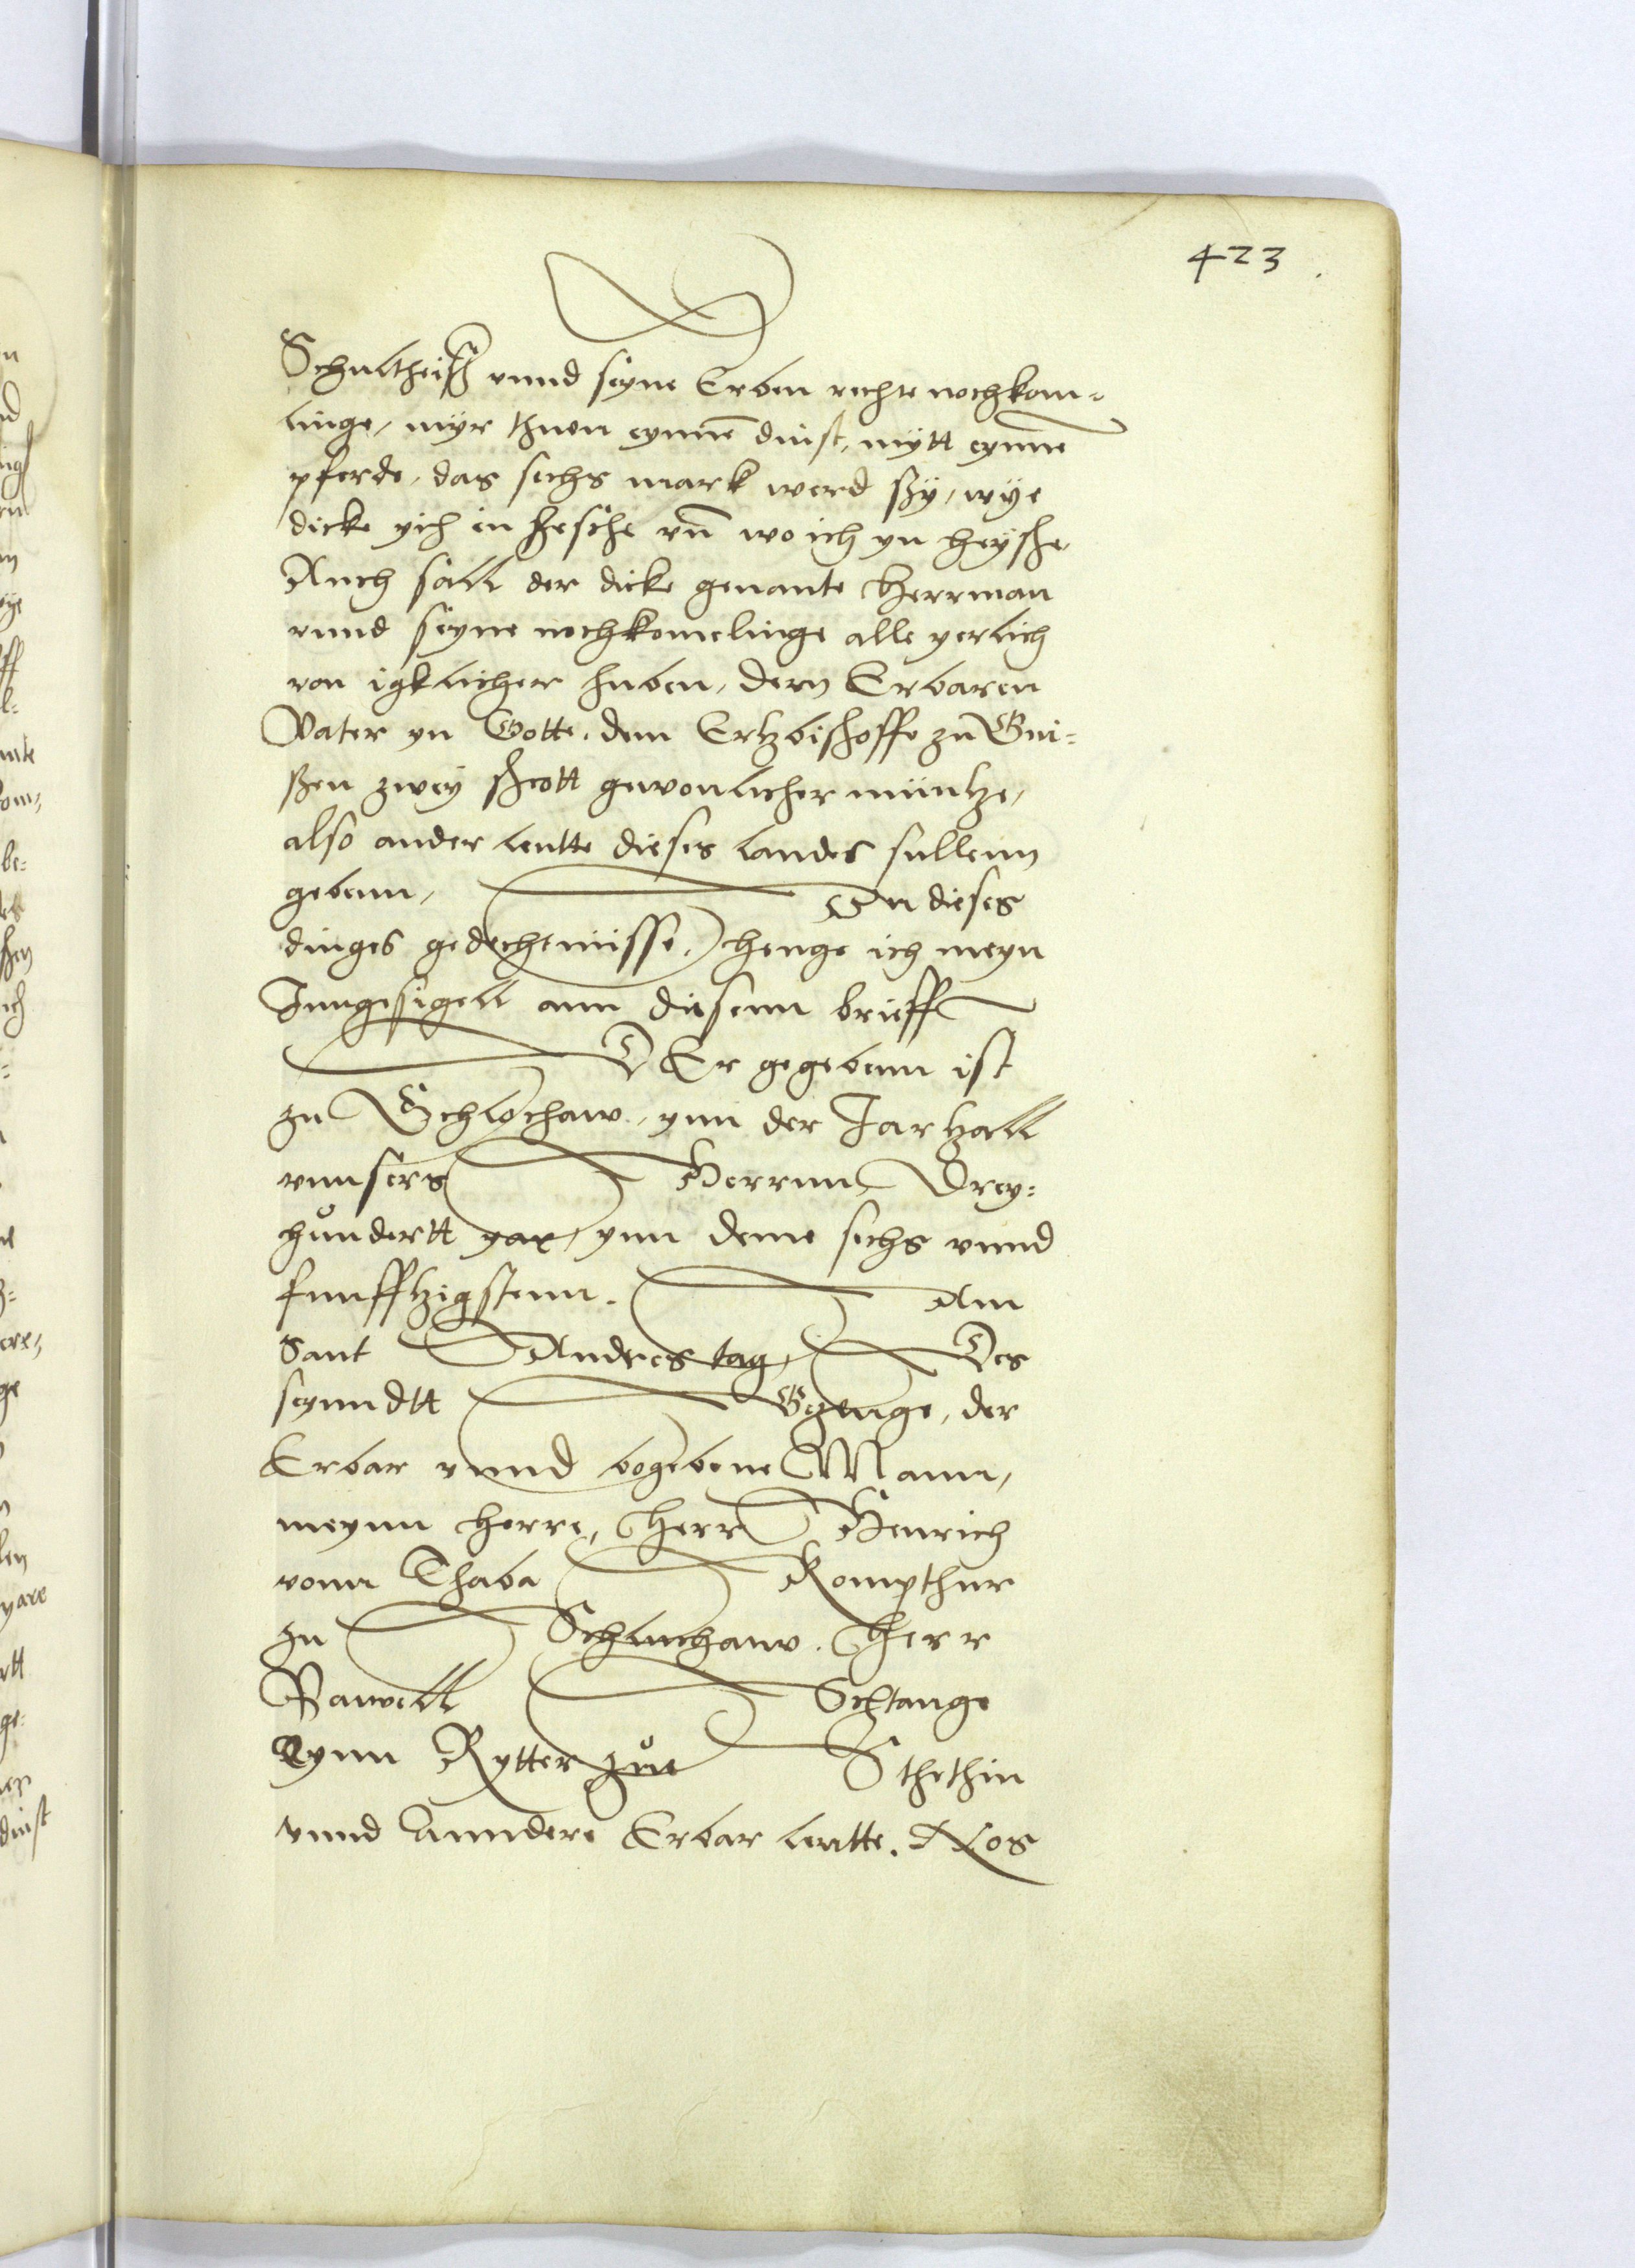 423
Schultheiß vnnd seyne Erben rechte nochkom=
linge, myr thuen eynnē dinst, mytt eynnē
pferde, das sechs mark werd sßy, wye
dicke yich in hesche vn̄ wo ich yn heysche
Auch sall der dicke genante Herrman
vnnd seyne nochkomelinge alle yerlich
von igklicher huben, dem Erbaren
Vater yn Gotte, dem Ertzbischoffe zu Gni=
ßen zwey schott gewonlicher müntze,
also ander leutte dieses landes sullenn
gebenn, In dieses
dinges gedechtnisse, henge ich meyn
Inngesigell ann diesenn brieff
DEr gegebenn ist
zu Schlochaw, ynn der Jar tzall
vnnsers Herrnn Drey=
hůndertt yar, ynn deme sechs vnnd
funfftzigstenn. Am
Sant Andres tag, Des
seynndtt Getzeuge, der
Erbar vnnd begebene Mann,
meynn herre, Herr Henrich
vonn Thaba Kompthur
zu Schluchaw. Herr
Pawell Schtange
Eynn Rytter zůe Stthethin
vnnd anndere Erbar leutte.